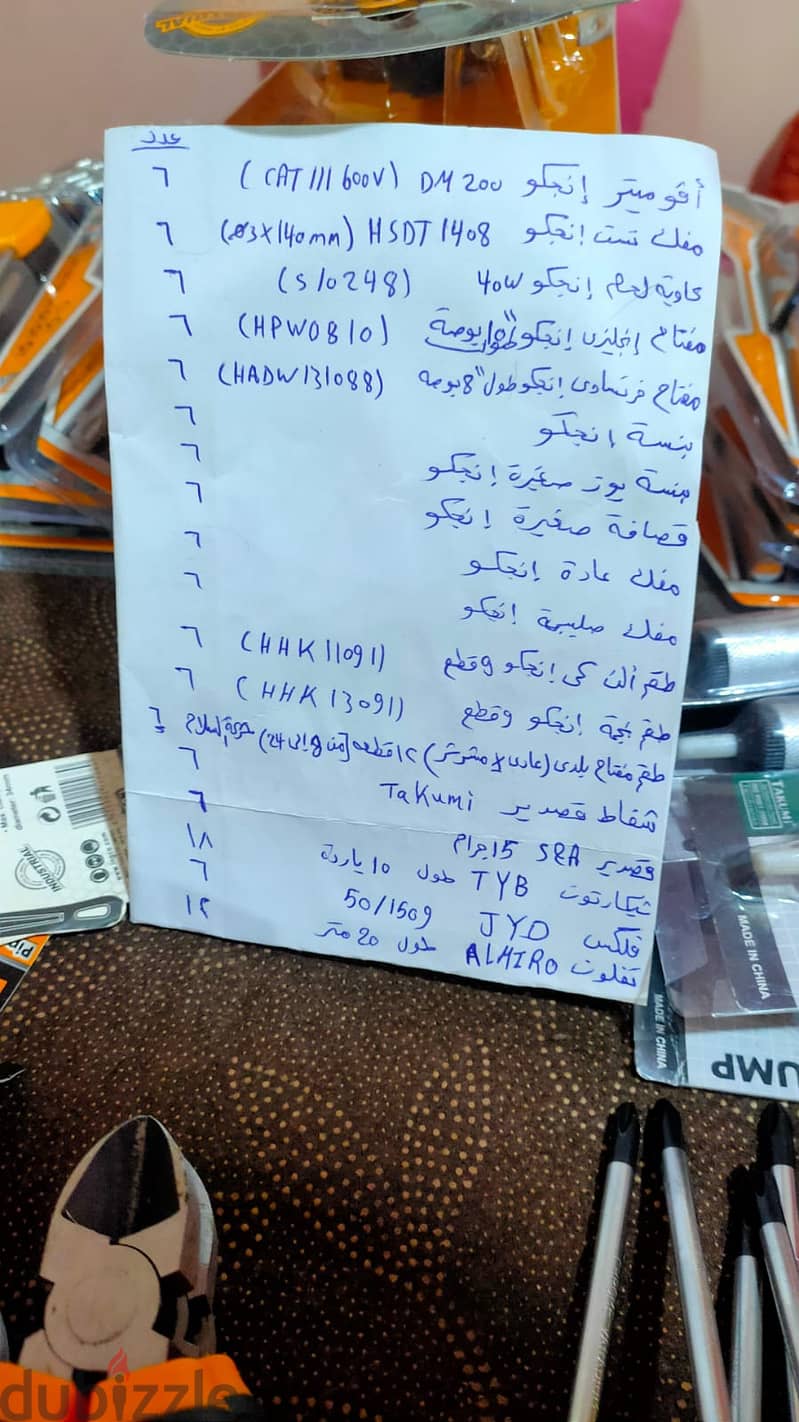 عدد
أڤوميتر إنجكو DM 200 (CAT III 600V) ٦
مفك تست إنجكو HSDT 1408 (ø3X140mm) ٦
كاوية لحام إنجكو 40W (SI0248) ٦
مفتاح إنجليزى إنجكو طول 10" بوصة (HPW0810) ٦
مفتاح فرنساوى إنجكو طول 8" بوصه (HADW131088) ٦
بنسة إنجكو ٦
بنسة بوز صغيرة إنجكو ٦
قصافة صغيرة إنجكو ٦
مفك عادة إنجكو ٦
مفك صليبة إنجكو ٦
طقم ألن كى إنجكو ٩ قطع (HHK11091) ٦
طقم نجمة إنجكو ٩ قطع (HHK13091) ٦
طقم مفتاح بلدى (عادى x مشرشر) ١٢ قطعه [من 8 إلى 24] ٦
شفاط قصدير Takumi ٦
قصدير S&A 15 جرام ٦
شيكارتون TYB طول ١٠ ياردة ١٨
فلكس JYD 50/150g ٦
تفلون ALMIRO طول 20 متر ١٢
INDUSTRIAL
TAKUMI
MADE IN CHINA
MADE IN CHINA
dubizzle